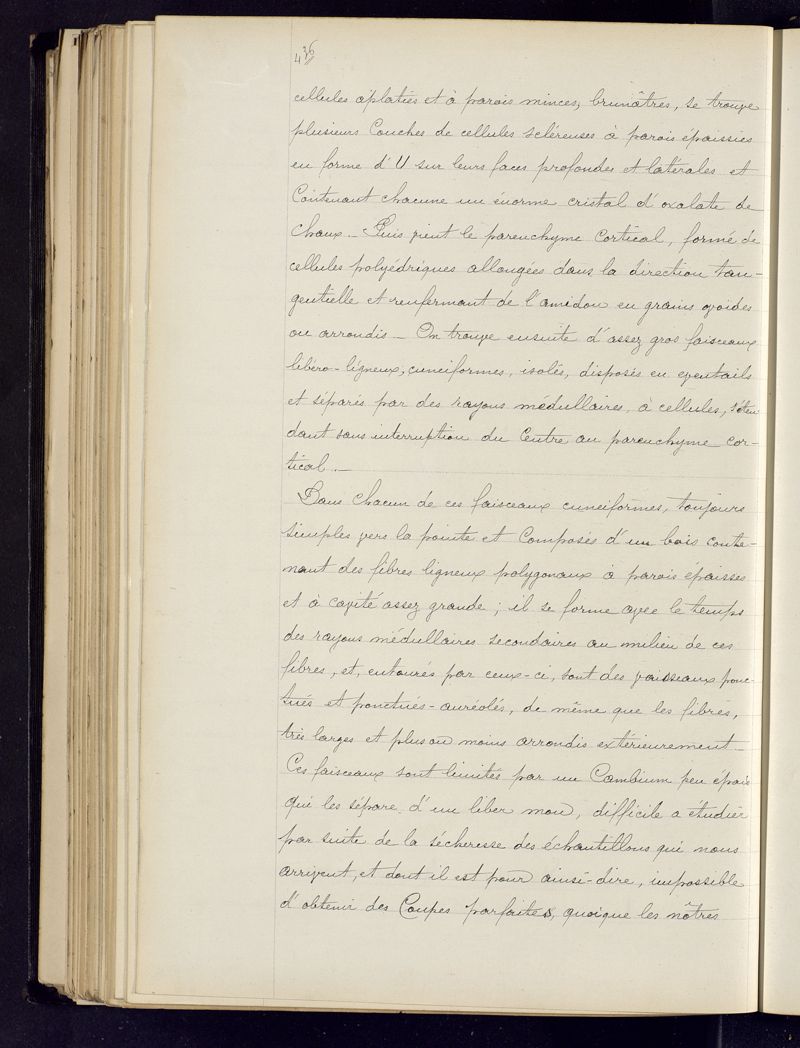 436
cellules aplaties et à parois minces, brunâtres, se trouve
plusieurs Couches de cellules scléreuses à parois épaissies
en forme d'U sur leurs faces profondes et latérales et
Contenant chacune un énorme cristal d'oxalate de
Chaux — Puis vient le parenchyme Cortical, formé de
cellules polyédriques allongées dans la direction tan-
gentielle et renfermant de l'amidon en grains ovoides
ou arrondis — On trouve ensuite d'assez gros faisceaux
libéro-ligneux, cuneiformes, isolés, disposés en eventails
et séparés par des rayons médullaires, à cellules, s'éten
dant sans interruption du Centre au parenchyme cor-
tical —
Dans chacun de ces faisceaux cuneiformes, toujours
simples vers la pointe et Composés d'un bois conte-
nant des fibres ligneux polygonaux à parois épaisses
et à cavité assez grande ; il se forme avec le temps
des rayons médullaires secondaires au milieu de ces
fibres, et, entourés par ceux-ci, sont des vaisseaux ponc-
tués et ponctués-auréolés, de même que les fibres,
très larges et plus ou moins arrondis extérieurement —
Ces faisceaux sont limités par un Cambium peu epais
qui les sépare d'un liber mou, difficile a etudier
par suite de la sécheresse des échantillons qui nous
arrivent, et dont il est pour ainsi-dire, impossible
d'obtenir des Coupes parfaites, quoique les nôtres